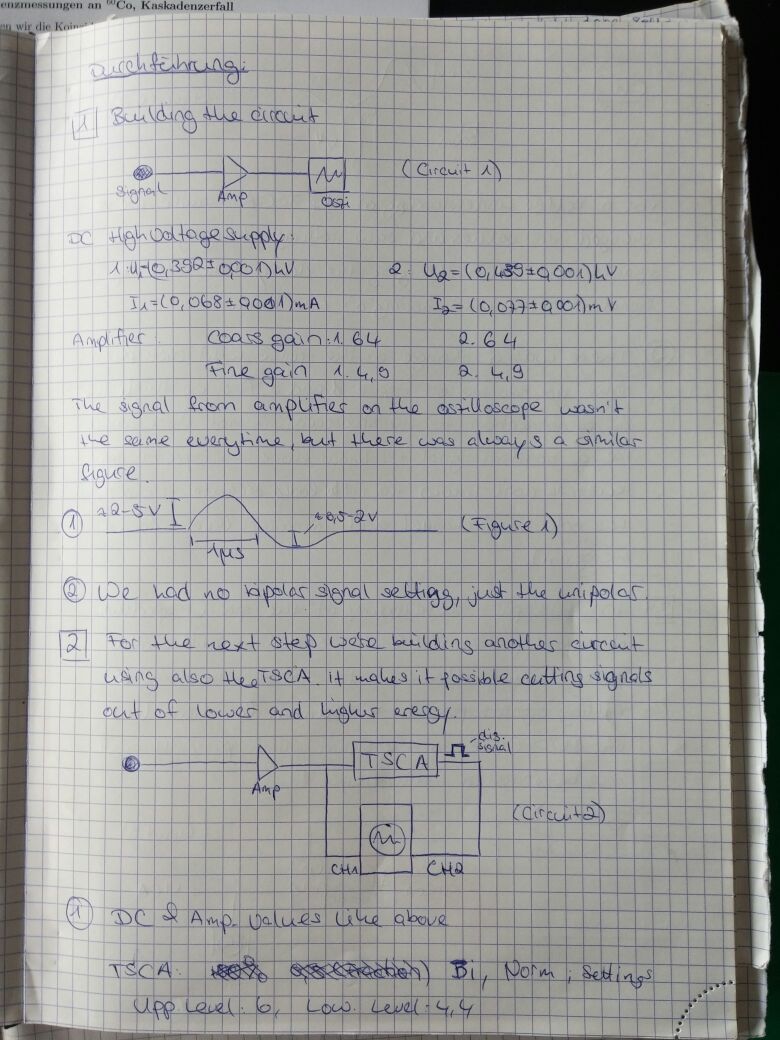 enzmessungen an ⁶⁰Co, Kaskadenzerfall
en wir die
Durchführung:
1 Building the circuit
Signal Amp Oszi (Circuit 1)
DC High Voltage supply:
1. U₁=(0,392±0,001)kV 2. U₂=(0,439±0,001)kV
I₁=(0,068±0,001)mA I₂=(0,077±0,001)mV
Amplifier: Coars gain: 1. 64 2. 64
Fine gain 1. 4,9 2. 4,9
The signal from amplifier on the oszilloscope wasn't
the same everytime, but there was always a similar
figure.
① ≈2-5V 1µs ≈0,5-2V (Figure 1)
② We had no bipolar signal settigg, just the unipolar.
2 For the next step we're building another circuit
using also the TSCA. It makes it possible cutting signals
out of lower and higher energy.
Amp TSCA dig. signal
CH1 CH2 (Circuit 2)
① DC & Amp. Values like above
TSCA: Bi, Norm; Settings
Upp Level: 6, Low. Level: 4,4